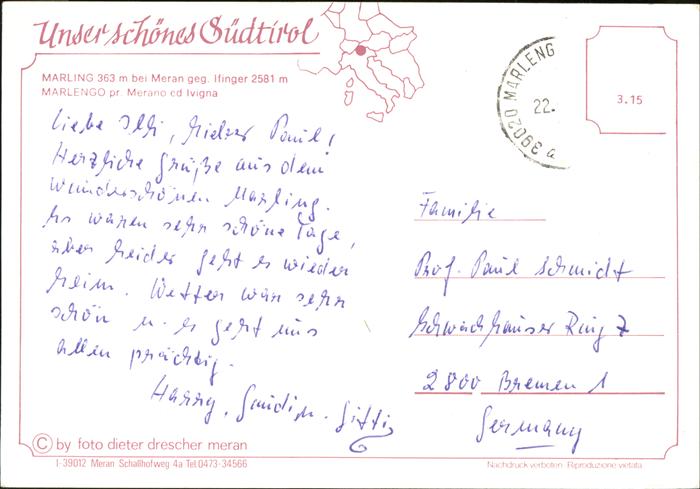 Unser schönes Südtirol
MARLING 363 m bei Meran geg. Ifinger 2581 m
MARLENGO pr. Merano cd Ivigna
Liebe Illi, Lieber Paul,
Herzliche Grüße aus dem
wunderschönen Marling.
Es waren sehr schöne Tage,
aber leider geht es wieder
heim. Wetter war sehr
schön u. es geht uns
allen prächtig.
Harry, u. Gitti
39020 MARLENG
22.
a
3.15
Familie
Prof. Paul Schmidt
Schwachhauser Ring 7
2800 Bremen 1
Germany
© by foto dieter drescher meran
I-39012 Meran Schallhofweg 4a Tel.0473-34566
Nachdruck verboten Riproduzione vietata